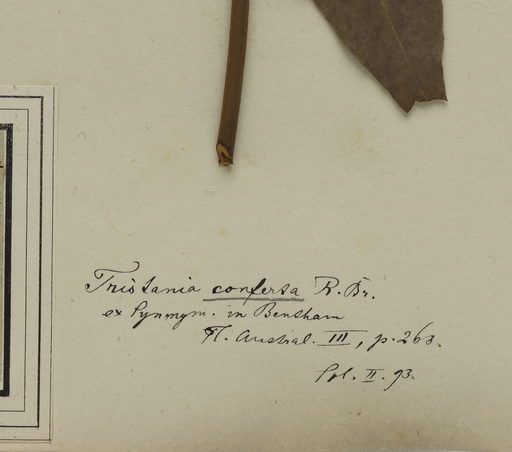 Tristania conferta R. Br.
ex Synonym. in Bentham
Fl. Austral. III, p. 263.
II. 93.